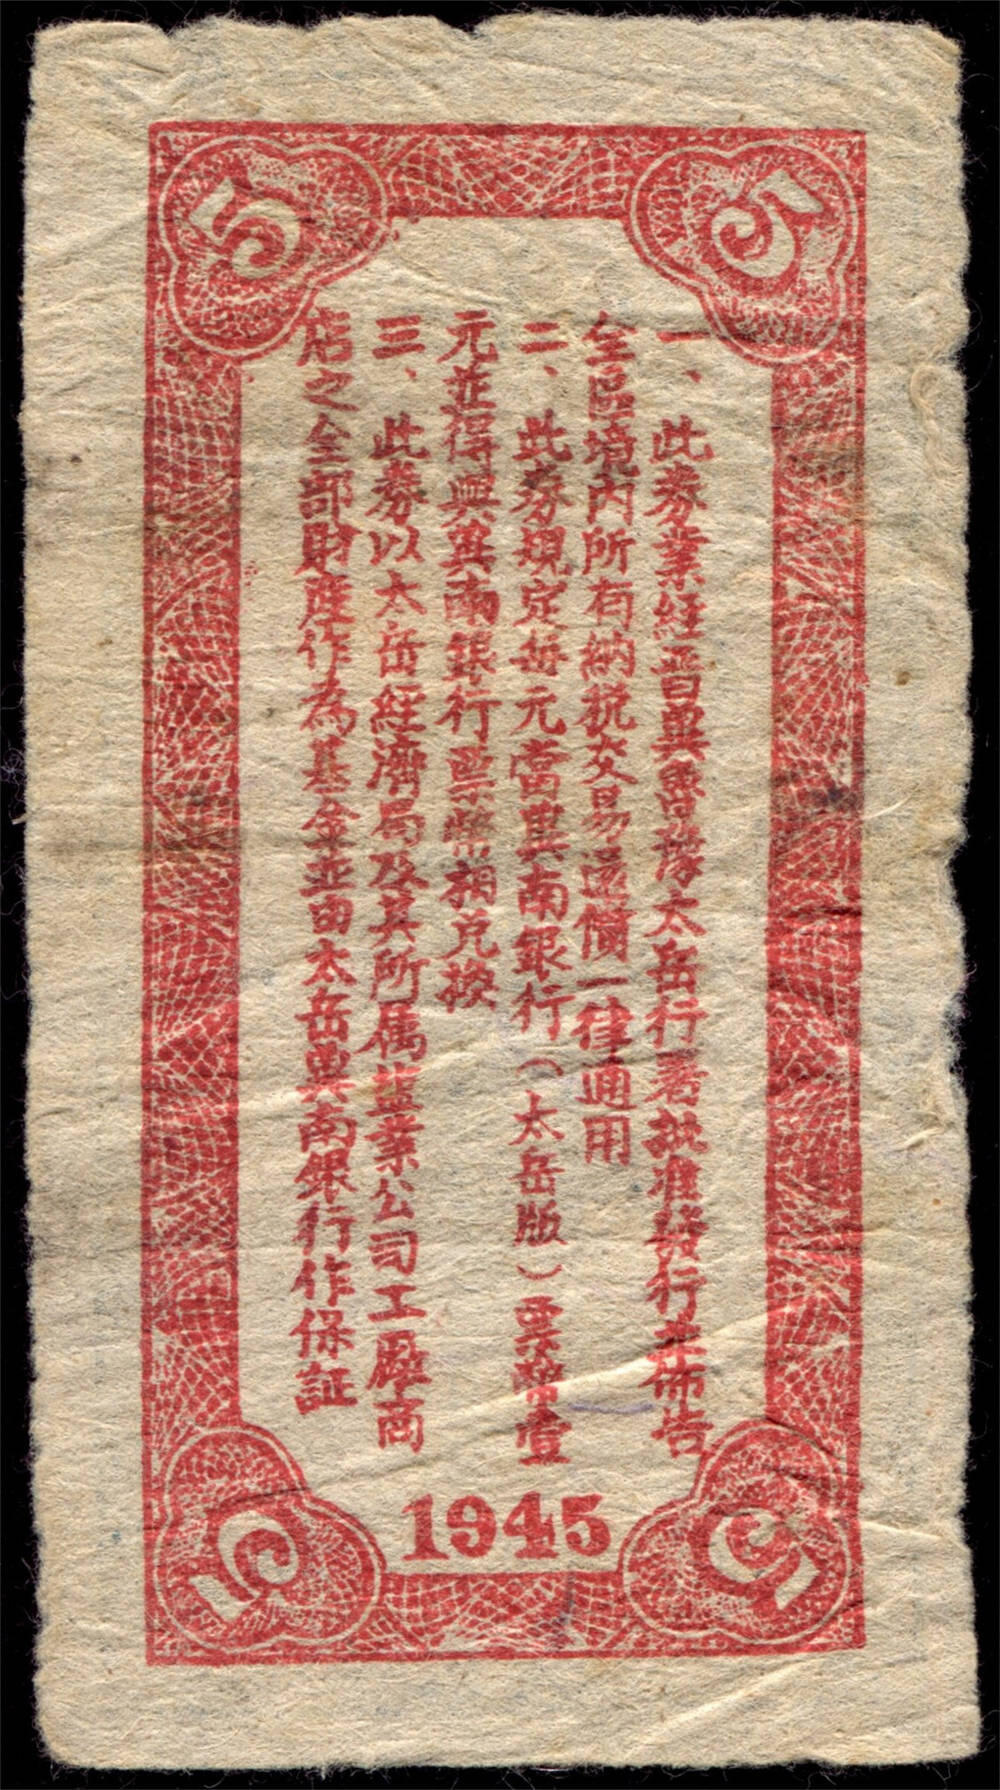 5
5
一、此券業經晋冀魯豫太岳行署批准發行並佈告
全區境内所有納税交易還價一律通用
二、此券規定每元當冀南銀行（太岳版）票幣壹
元並得與冀南銀行票幣相兑换
三、此券以太岳經濟局及其所属塩業公司工厰商
店之全部財産作為基金並由太岳冀南銀行作保証
5
1945
5